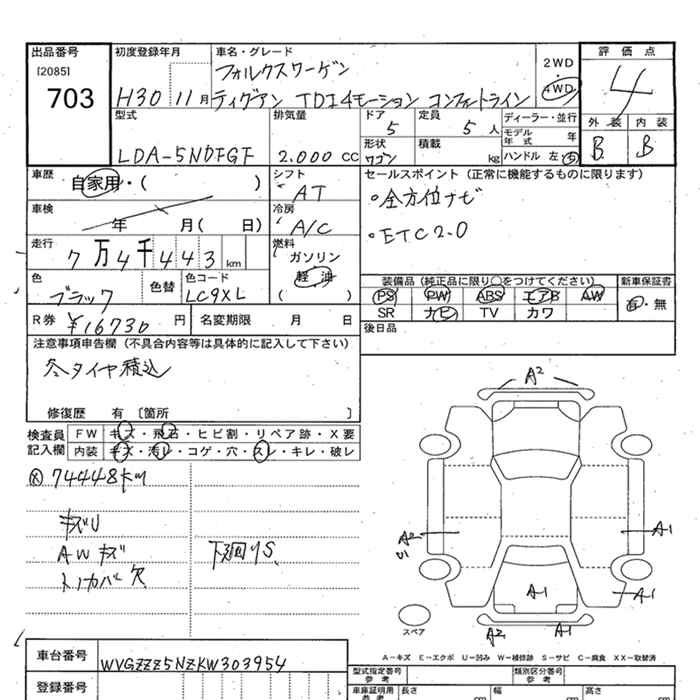 出品番号
[2085]
703
初度登録年月
H30 11月
車名・グレード
フォルクスワーゲン
ティグアン TDI 4モーション コンフォートライン
2WD
・
4WD
評価点
4
外装 内装
B B
型式
LDA-5NDFGF
排気量
2.000 cc
ドア
5
定員
5 人
形状
ワゴン
積載
kg
ディーラー・並行
モデル年式 年
ハンドル 左・右
車歴
自家用・( )
シフト
AT
車検
年 月( 日)
冷房
A/C
走行
7万4千443km
燃料
ガソリン
軽油
( )
色
ブラック
色替
色コード
LC9XL
R券 ¥16730 円
名変期限 月 日
セールスポイント(正常に機能するものに限ります)
・全方位ナビ
・ETC2.0
装備品(純正品に限り○をつけてください)
PS PW ABS エアB AW
SR ナビ TV カワ
新車保証書
有・無
後日品
注意事項申告欄(不具合内容等は具体的に記入して下さい)
冬タイヤ積込
修復歴 有 [箇所 ]
検査員記入欄
FW キズ・飛石・ヒビ割・リペア跡・X要
内装 キズ・汚レ・コゲ・穴・スレ・キレ・破レ
74448km
キズU
AWキズ
トノカバー欠
下廻りS
A2
A2
U1
A1
A-1
A-1
A2 A1
スペア
A－キズ E－エクボ U－凹み W－補修跡 S－サビ C－腐食 XX－取替済
車台番号
WVGZZZ5NZKW303954
登録番号
型式指定番号
参考
類別区分番号
参考
車庫証明用
参考
長さ cm
幅 cm
高さ cm